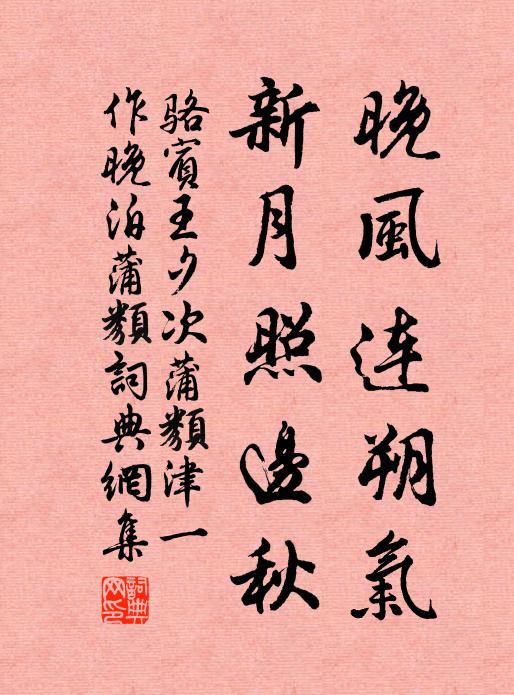 晚風连朔氣
新月照邊秋
駱賓王夕次蒲類津一
作晚泊蒲類詞典網集
詞典
网印